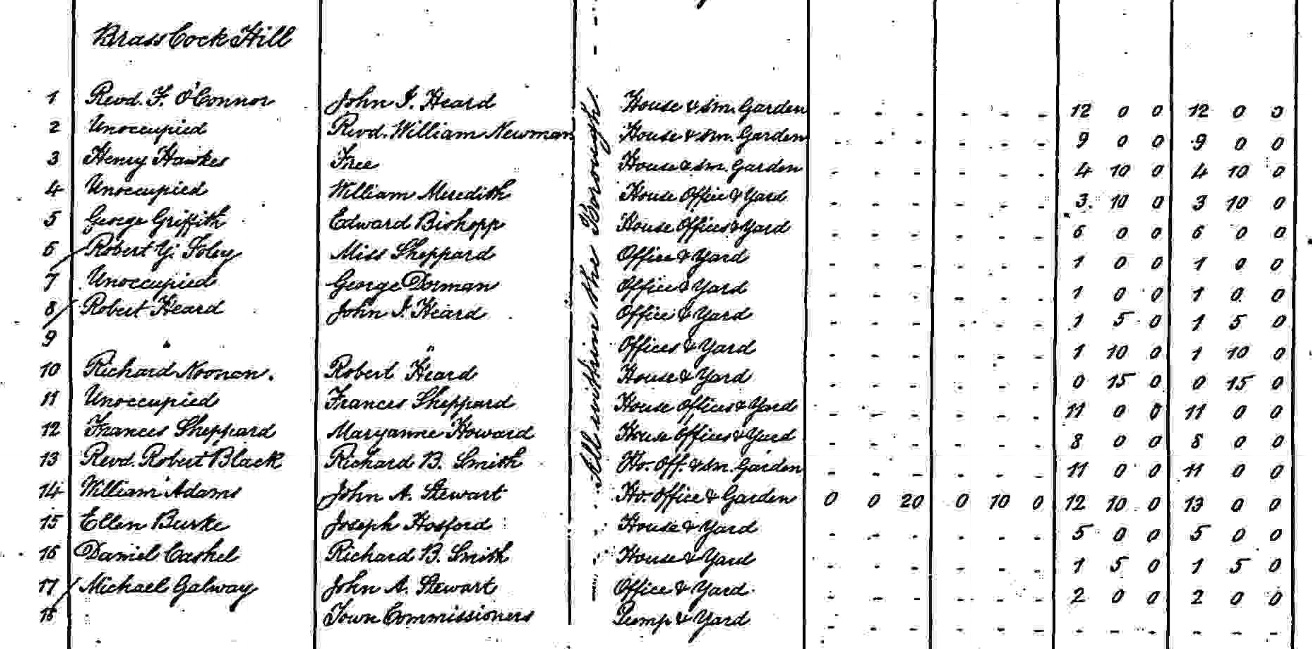 Brass Cock Hill
1 Revd. F. O'Connor John I. Heard House & sm. Garden - - - - - - 12 0 0 12 0 0
2 Unoccupied Revd. William Newman House & sm. Garden - - - - - - 9 0 0 9 0 0
3 Henry Hawkes Free House & sm. Garden - - - - - - 4 10 0 4 10 0
4 Unoccupied William Meredith House Office & Yard - - - - - - 3 10 0 3 10 0
5 George Griffith Edward Bishopp House Offices & Yard - - - - - - 6 0 0 6 0 0
6 Robert G. Foley Miss Sheppard Office & Yard - - - - - - 1 0 0 1 0 0
7 Unoccupied George Dorman Office & Yard - - - - - - 1 0 0 1 0 0
8 Robert Heard John I. Heard Office & Yard - - - - - - 1 5 0 1 5 0
9 " " Offices & Yard - - - - - - 1 10 0 1 10 0
10 Richard Noonan. Robert Heard House & Yard - - - - - - 0 15 0 0 15 0
11 Unoccupied Frances Sheppard House Offices & Yard - - - - - - 11 0 0 11 0 0
12 Frances Sheppard Maryanne Howard House Offices & Yard - - - - - - 8 0 0 8 0 0
13 Revd. Robert Black Richard B. Smith Ho. Off. & sm. Garden - - - - - - 11 0 0 11 0 0
14 William Adams John A. Stewart Ho. Office & Garden 0 0 20 0 10 0 12 10 0 13 0 0
15 Ellen Burke Joseph Hosford House & Yard - - - - - - 5 0 0 5 0 0
16 Daniel Cashel Richard B. Smith House & Yard - - - - - - 1 5 0 1 5 0
17 Michael Galway John A. Stewart Office & Yard - - - - - - 2 0 0 2 0 0
18 Town Commissioners Pump & Yard - - - - - - - - - - - -
All within the Borough.